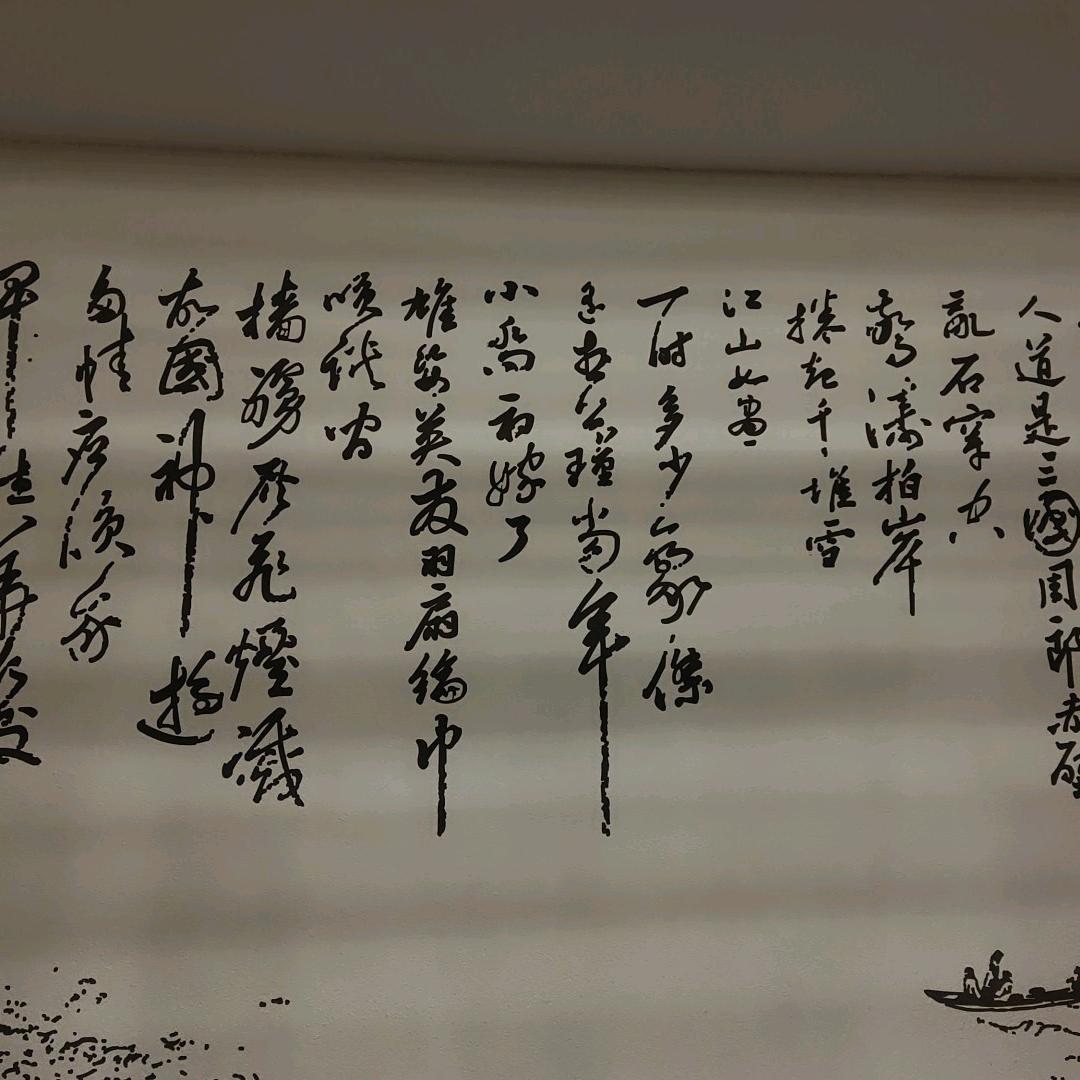 人道是三國周郎赤壁
亂石穿空
驚濤拍岸
捲起千堆雪
江山如畫
一時多少豪傑
遙想公瑾當年
小喬初嫁了
雄姿英發羽扇綸巾
笑談間
檣艣灰飛煙滅
故國神遊
多情應笑我
早生華髮